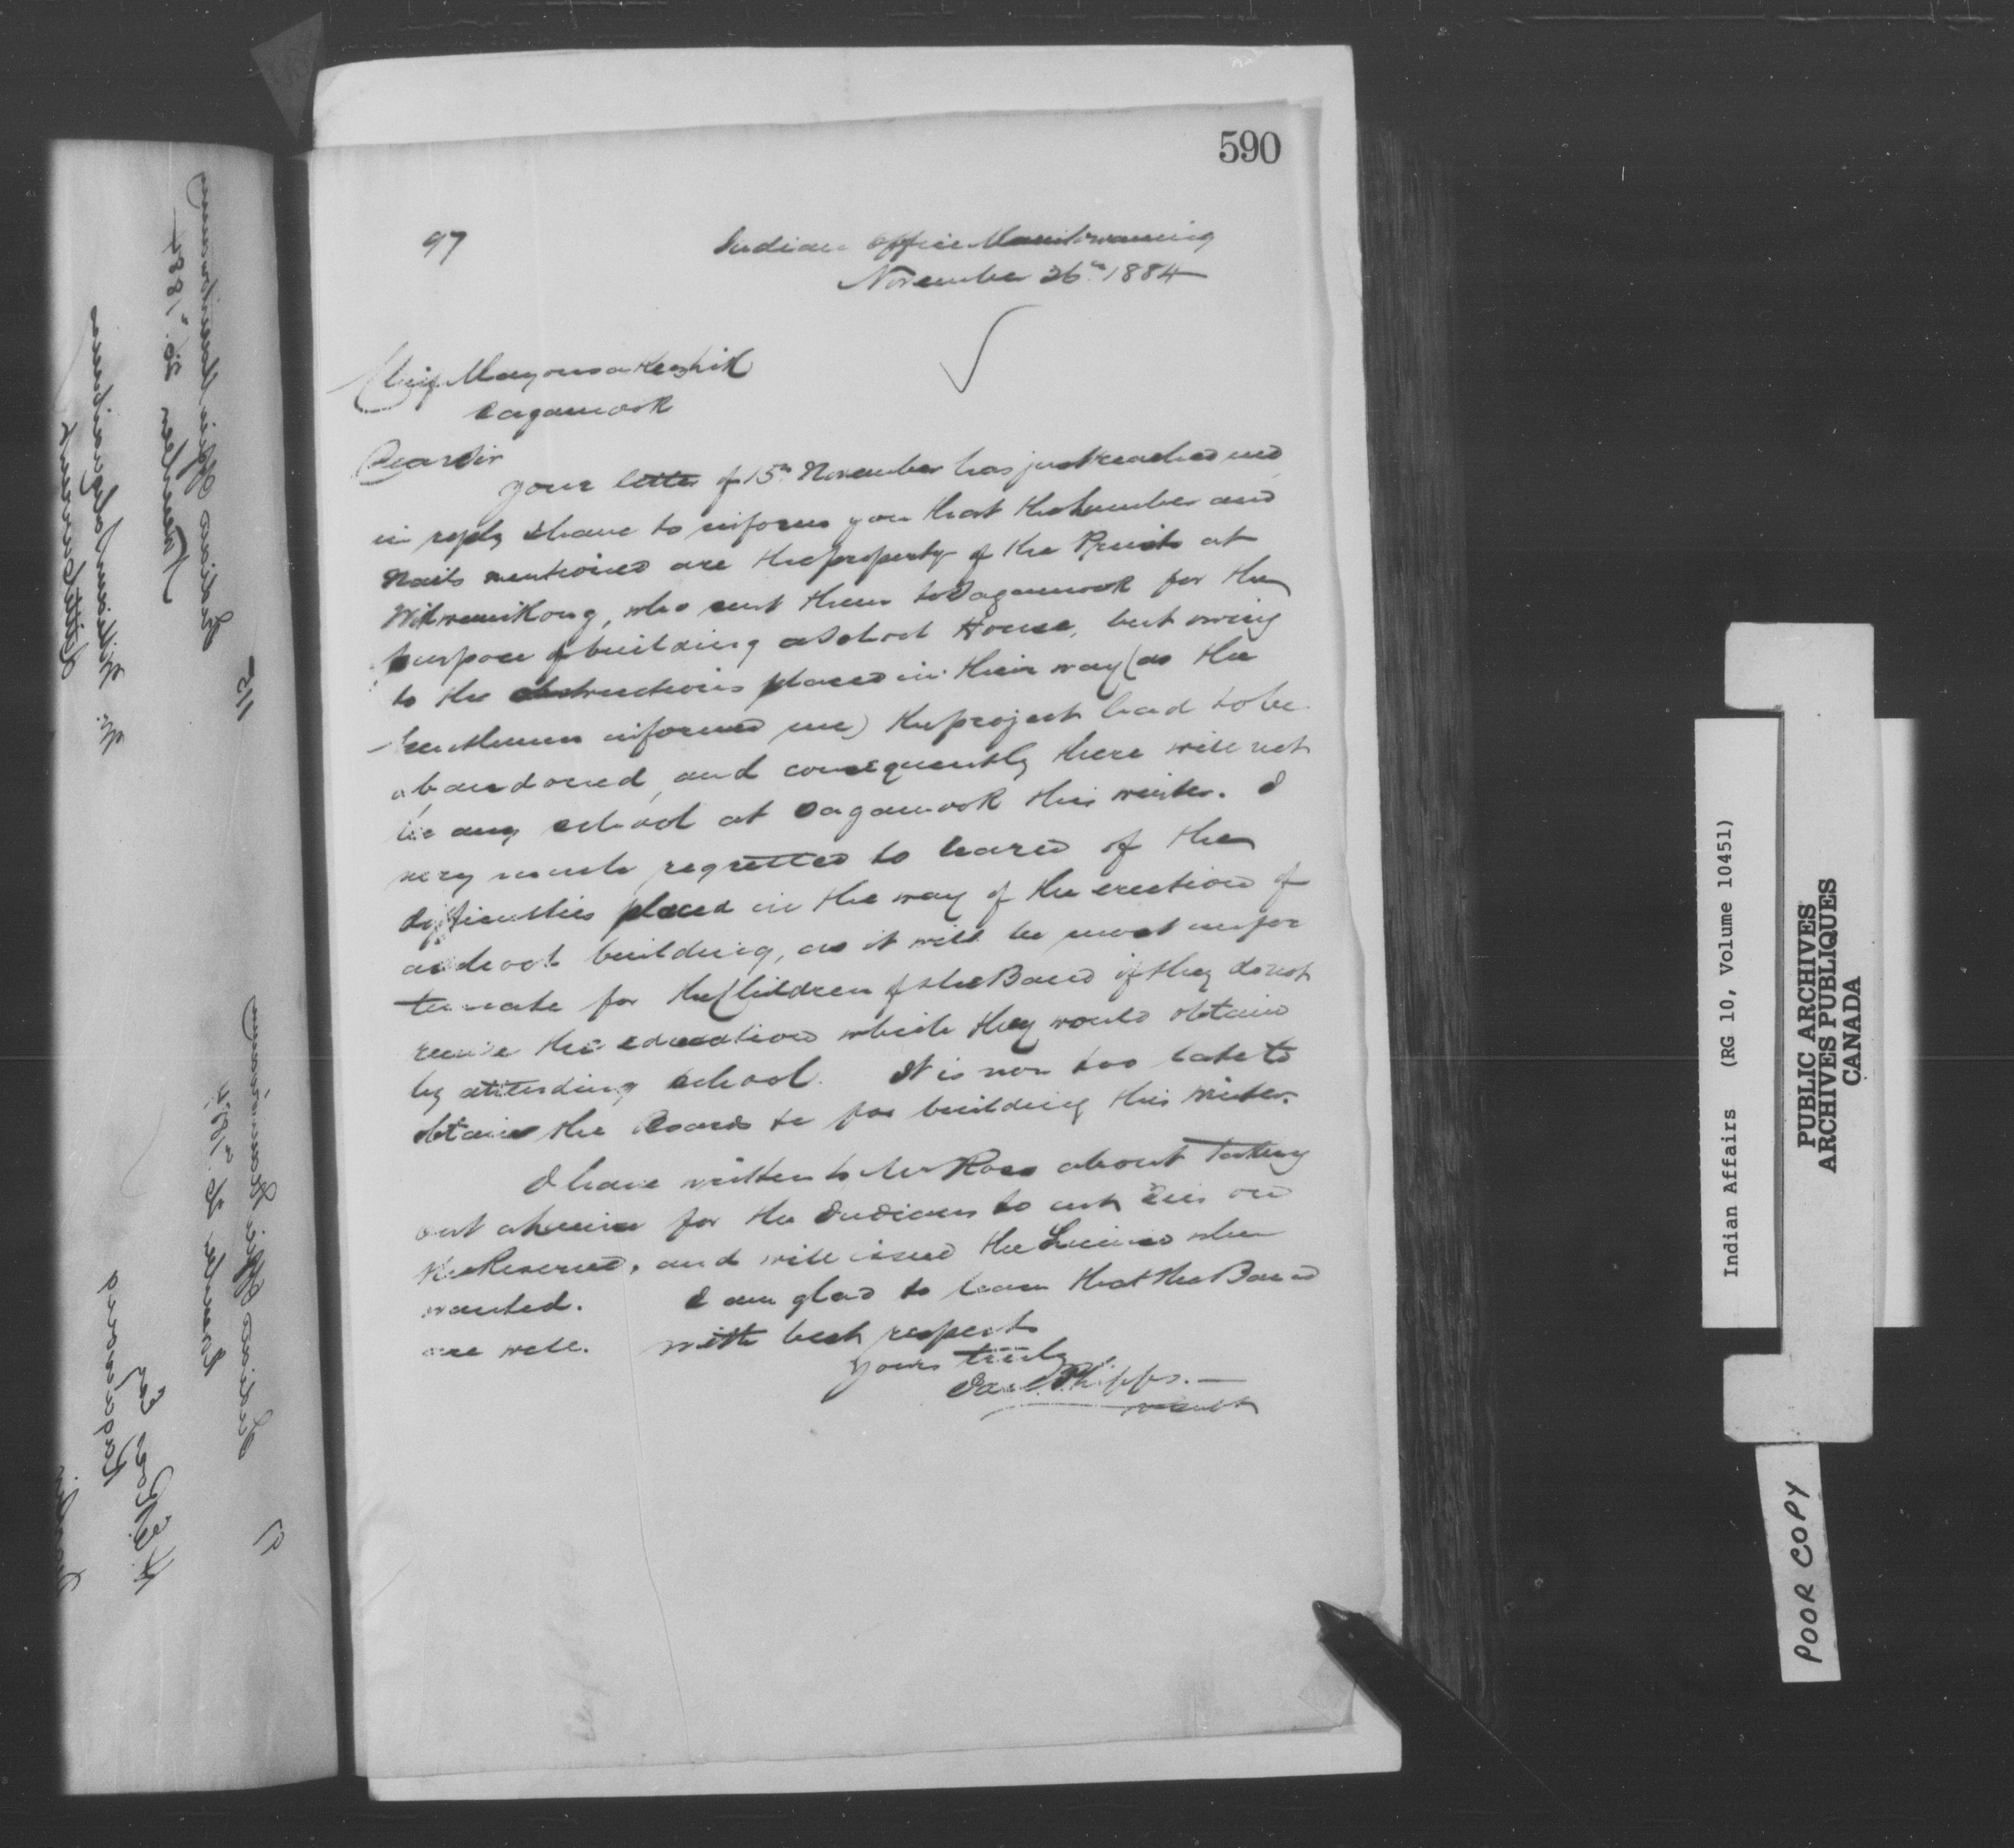 590
97
Indian Office Manitowaning
November 26th 1884
Chief
Sagamook
Dear Sir
your letter of 15th November has just reached me
in reply I have to inform you that the Lumber and
Nails mentioned are the property of the Priests at
Wikwemikong, who sent them to Sagamook for the
purpose of building a School House, but owing
to the obstructions placed in their way (as the
Gentlemen informed me) the project had to be
abandoned, and consequently there will not
be any school at Sagamook this winter. I
very much regretted to learn of the
difficulties placed in the way of the erection of
a school building, as it will be most unfor
tunate for the Children of the Band if they do not
receive the education which they would obtain
by attending school. It is now too late to
obtain the Boards &c for building this winter.
I have written to Mr Ross about taking
out a license for the Indians to cut Ties on
the Reserve, and will issue the License when
wanted. I am glad to learn that the Band
are well. With best respects
yours truly
Jas. C. Phipps.
Indian Affairs (RG 10, Volume 10451)
PUBLIC ARCHIVES
ARCHIVES PUBLIQUES
CANADA
POOR COPY